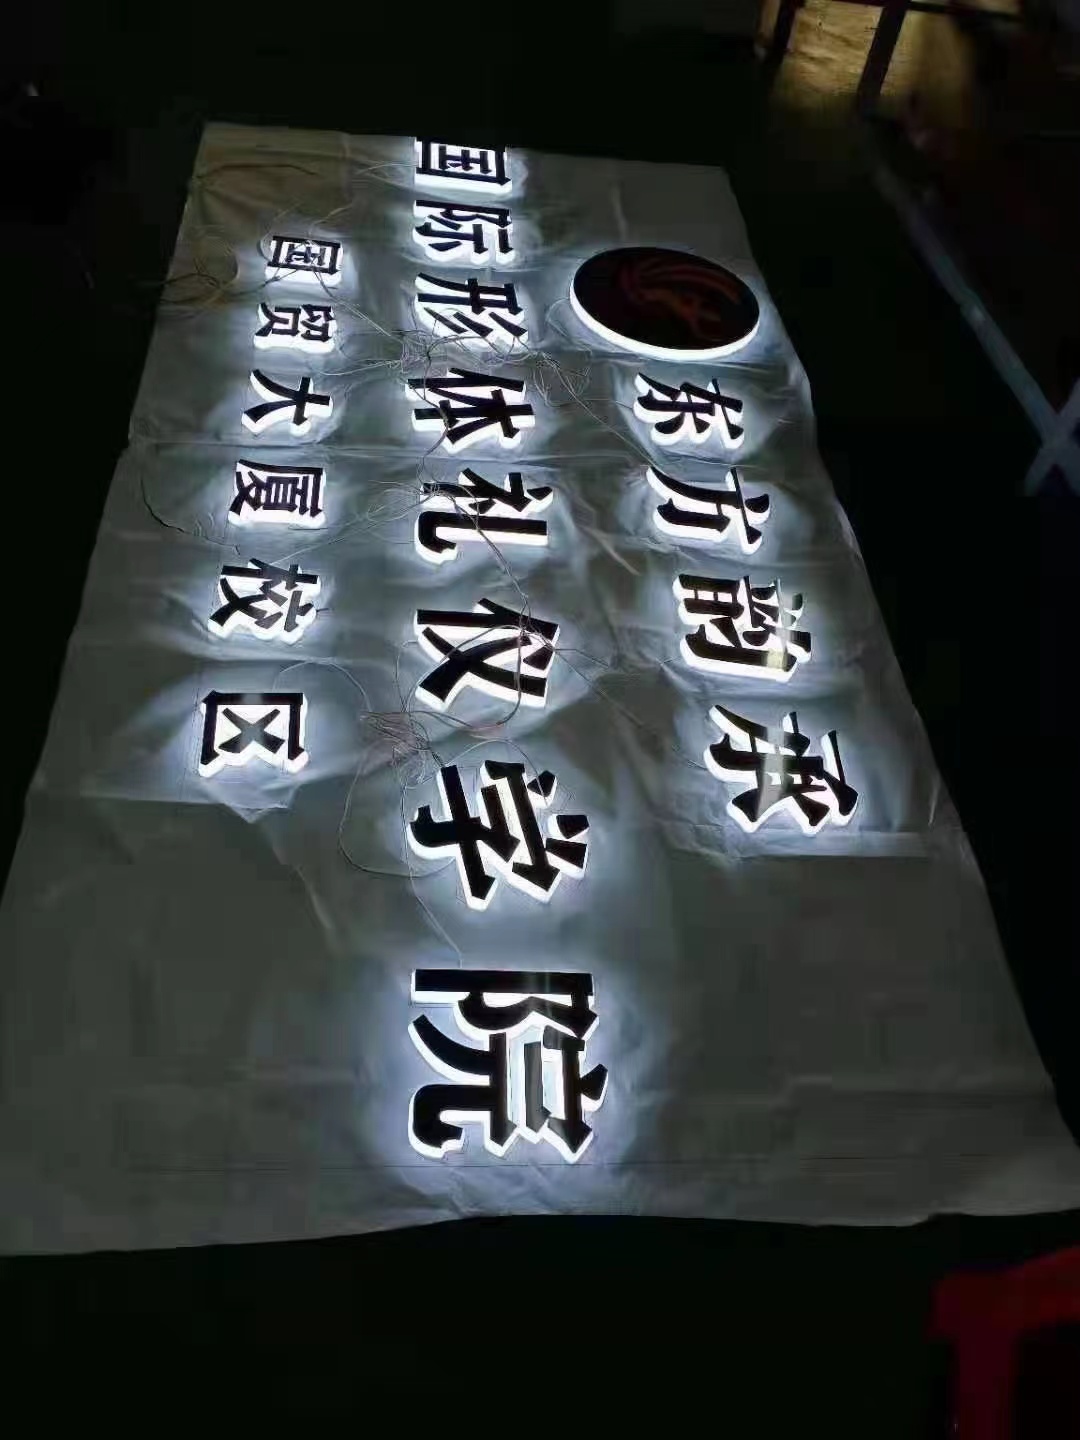 东方韵承
国际形体礼仪学院
国贸大厦校区